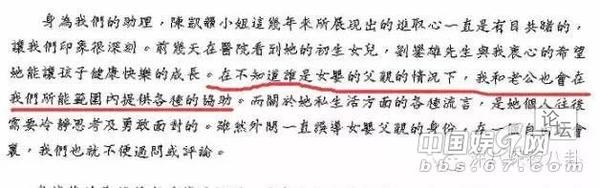 身為我們的助理，陳凱韻小姐這幾年來所展現出的進取心一直是有目共睹的，
讓我們印象很深刻。前幾天在醫院看到她的初生女兒，劉鑾雄先生與我衷心的希望
她能讓孩子健康快樂的成長。在不知道誰是女嬰的父親的情況下，我和老公也會在
我們所能範圍內提供各種的協助。而關於她私生活方面的各種流言，是她個人往後
需要冷靜思考及勇敢面對的。雖然外間一直誤導女嬰父親的身份，在一個自 會
裏，我們也就不便過問或評論。
論坛
中国娱乐网
bbs.67.com
八卦